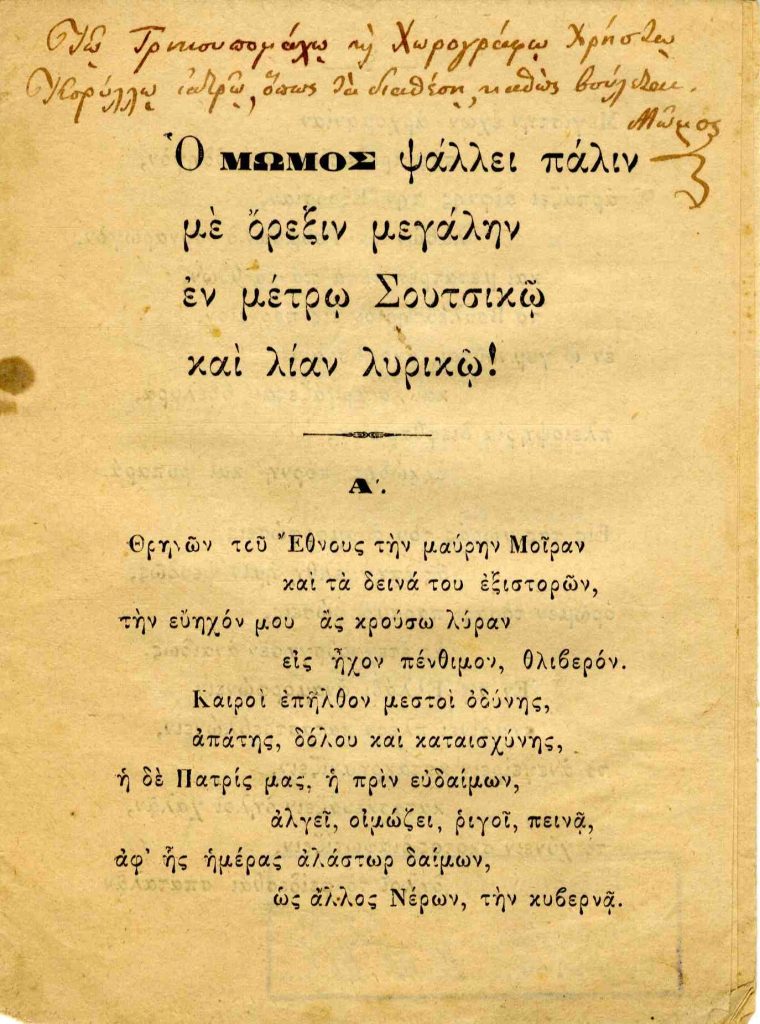 Τῷ Γρηκουπομάχῳ κῇ Χωρογράφῳ Χρήστῳ
Κορύλλῳ ἰατρῷ, ὅπως τὰ διαθέσῃ, καθὼς βούλεται.
Μῶμος
Ὁ ΜΩΜΟΣ ψάλλει πάλιν
μὲ ὄρεξιν μεγάλην
ἐν μέτρῳ Σουτσικῷ
καὶ λίαν λυρικῷ!
Α΄.
Θρηνῶν τοῦ Ἔθνους τὴν μαύρην Μοῖραν
καὶ τὰ δεινά του ἐξιστορῶν,
τὴν εὔηχόν μου ἂς κρούσω λύραν
εἰς ἦχον πένθιμον, θλιβερόν.
Καιροὶ ἐπῆλθον μεστοὶ ὀδύνης,
ἀπάτης, δόλου καὶ καταισχύνης,
ἡ δὲ Πατρίς μας, ἡ πρὶν εὐδαίμων,
ἀλγεῖ, οἰμώζει, ῥιγοῖ, πεινᾷ,
ἀφ' ἧς ἡμέρας ἀλάστωρ δαίμων,
ὡς ἄλλος Νέρων, τὴν κυβερνᾷ.